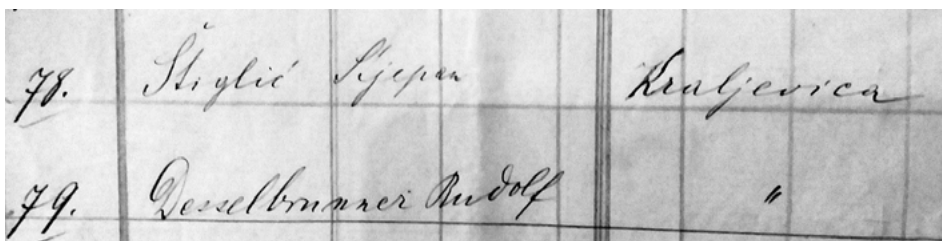 78. Štiglić Stjepan Kraljevica
79. Desselbrunner Rudolf "